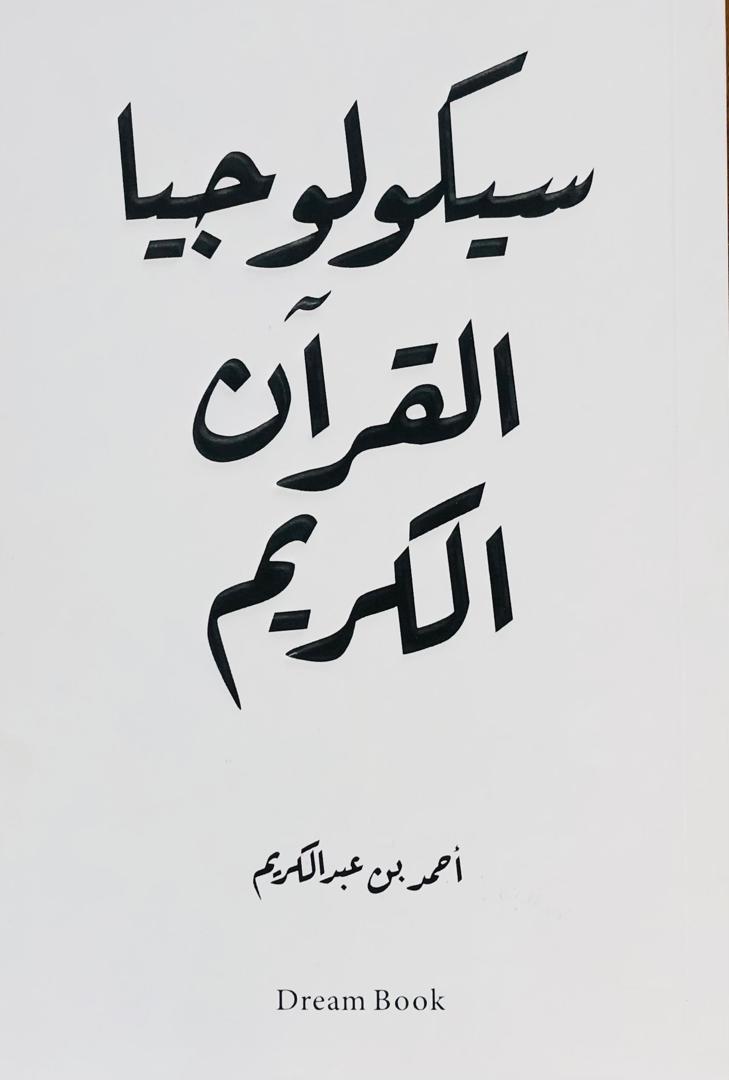 سيكولوجيا
القرآن
الكريم
أحمد بن عبدالكريم
Dream Book